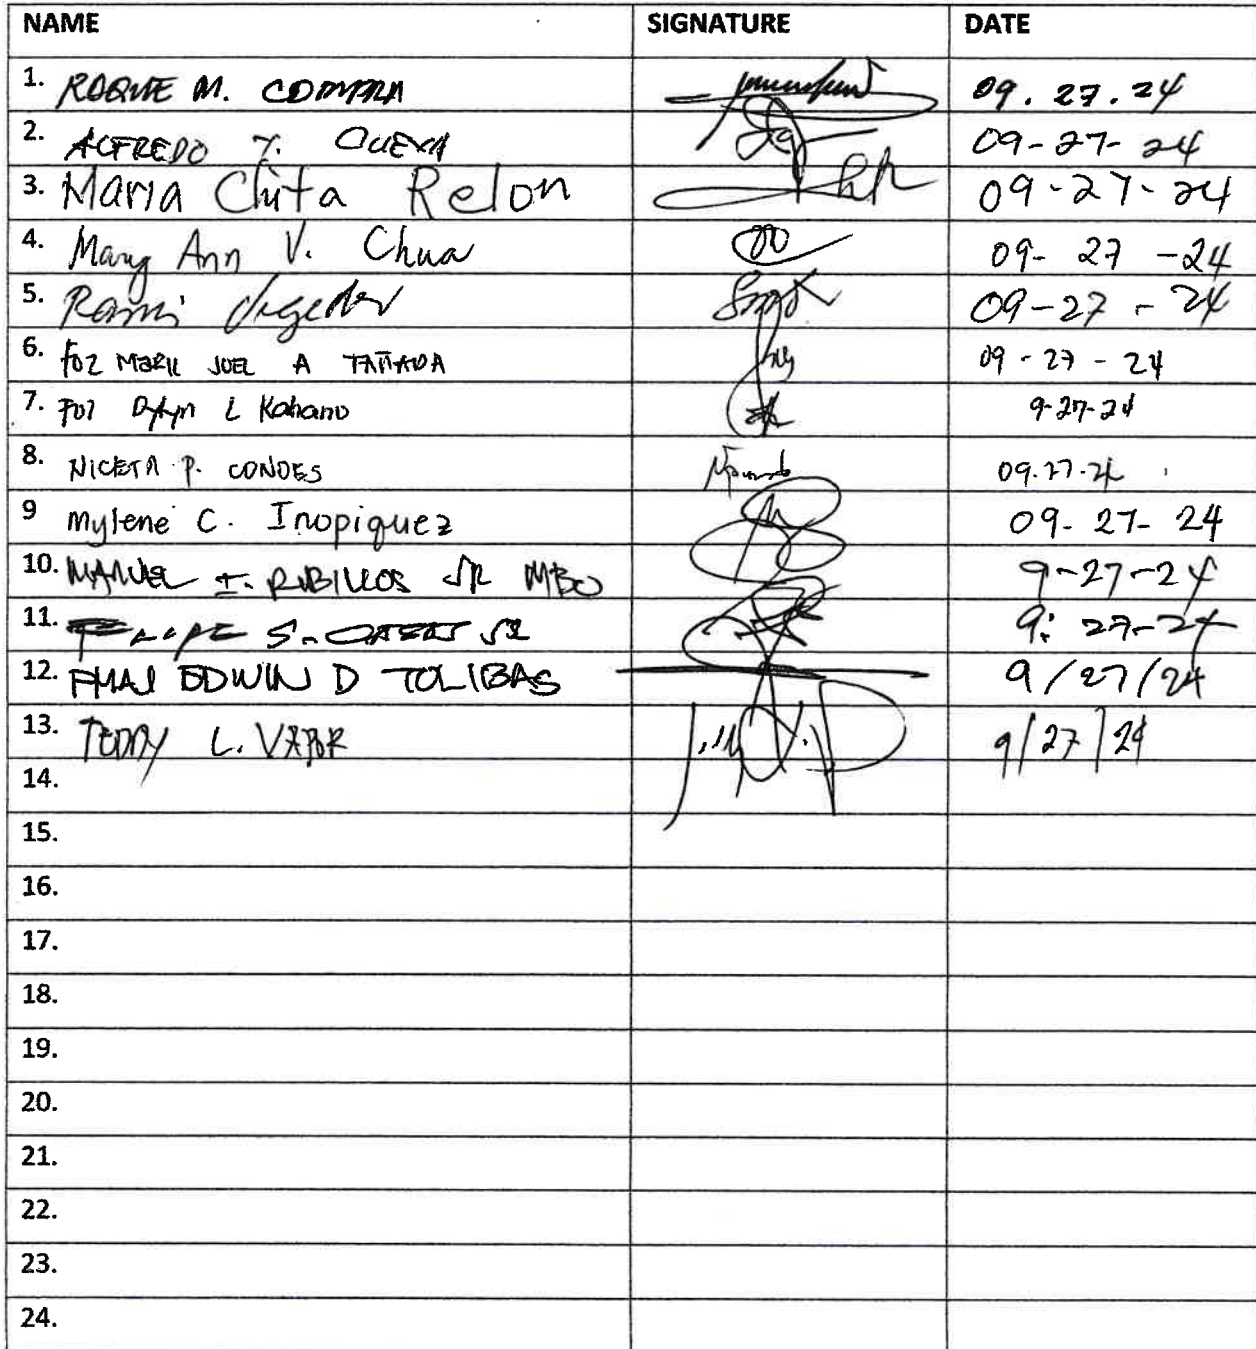 NAME SIGNATURE DATE
1. ROQUE M. 09.27.24
2. ALFREDO 09-27-24
3. Maria Chita Relon 09-27-24
4. Mary Ann V. Chua 09-27-24
5. 09-27-24
6. JOEL A TAÑADA 09-27-24
7. L Kahano 9-27-24
8. NICETA P. CONDES 09.27.24
9 Mylene C. Inopiquez 09-27-24
10. MANUEL I. RUBILLOS JR MBO 9-27-24
11. FELIPE S. JR 9-27-24
12. EDWIN D TOLIBAS 9/27/24
13. TEDDY L. 9/27/24
14.
15.
16.
17.
18.
19.
20.
21.
22.
23.
24.